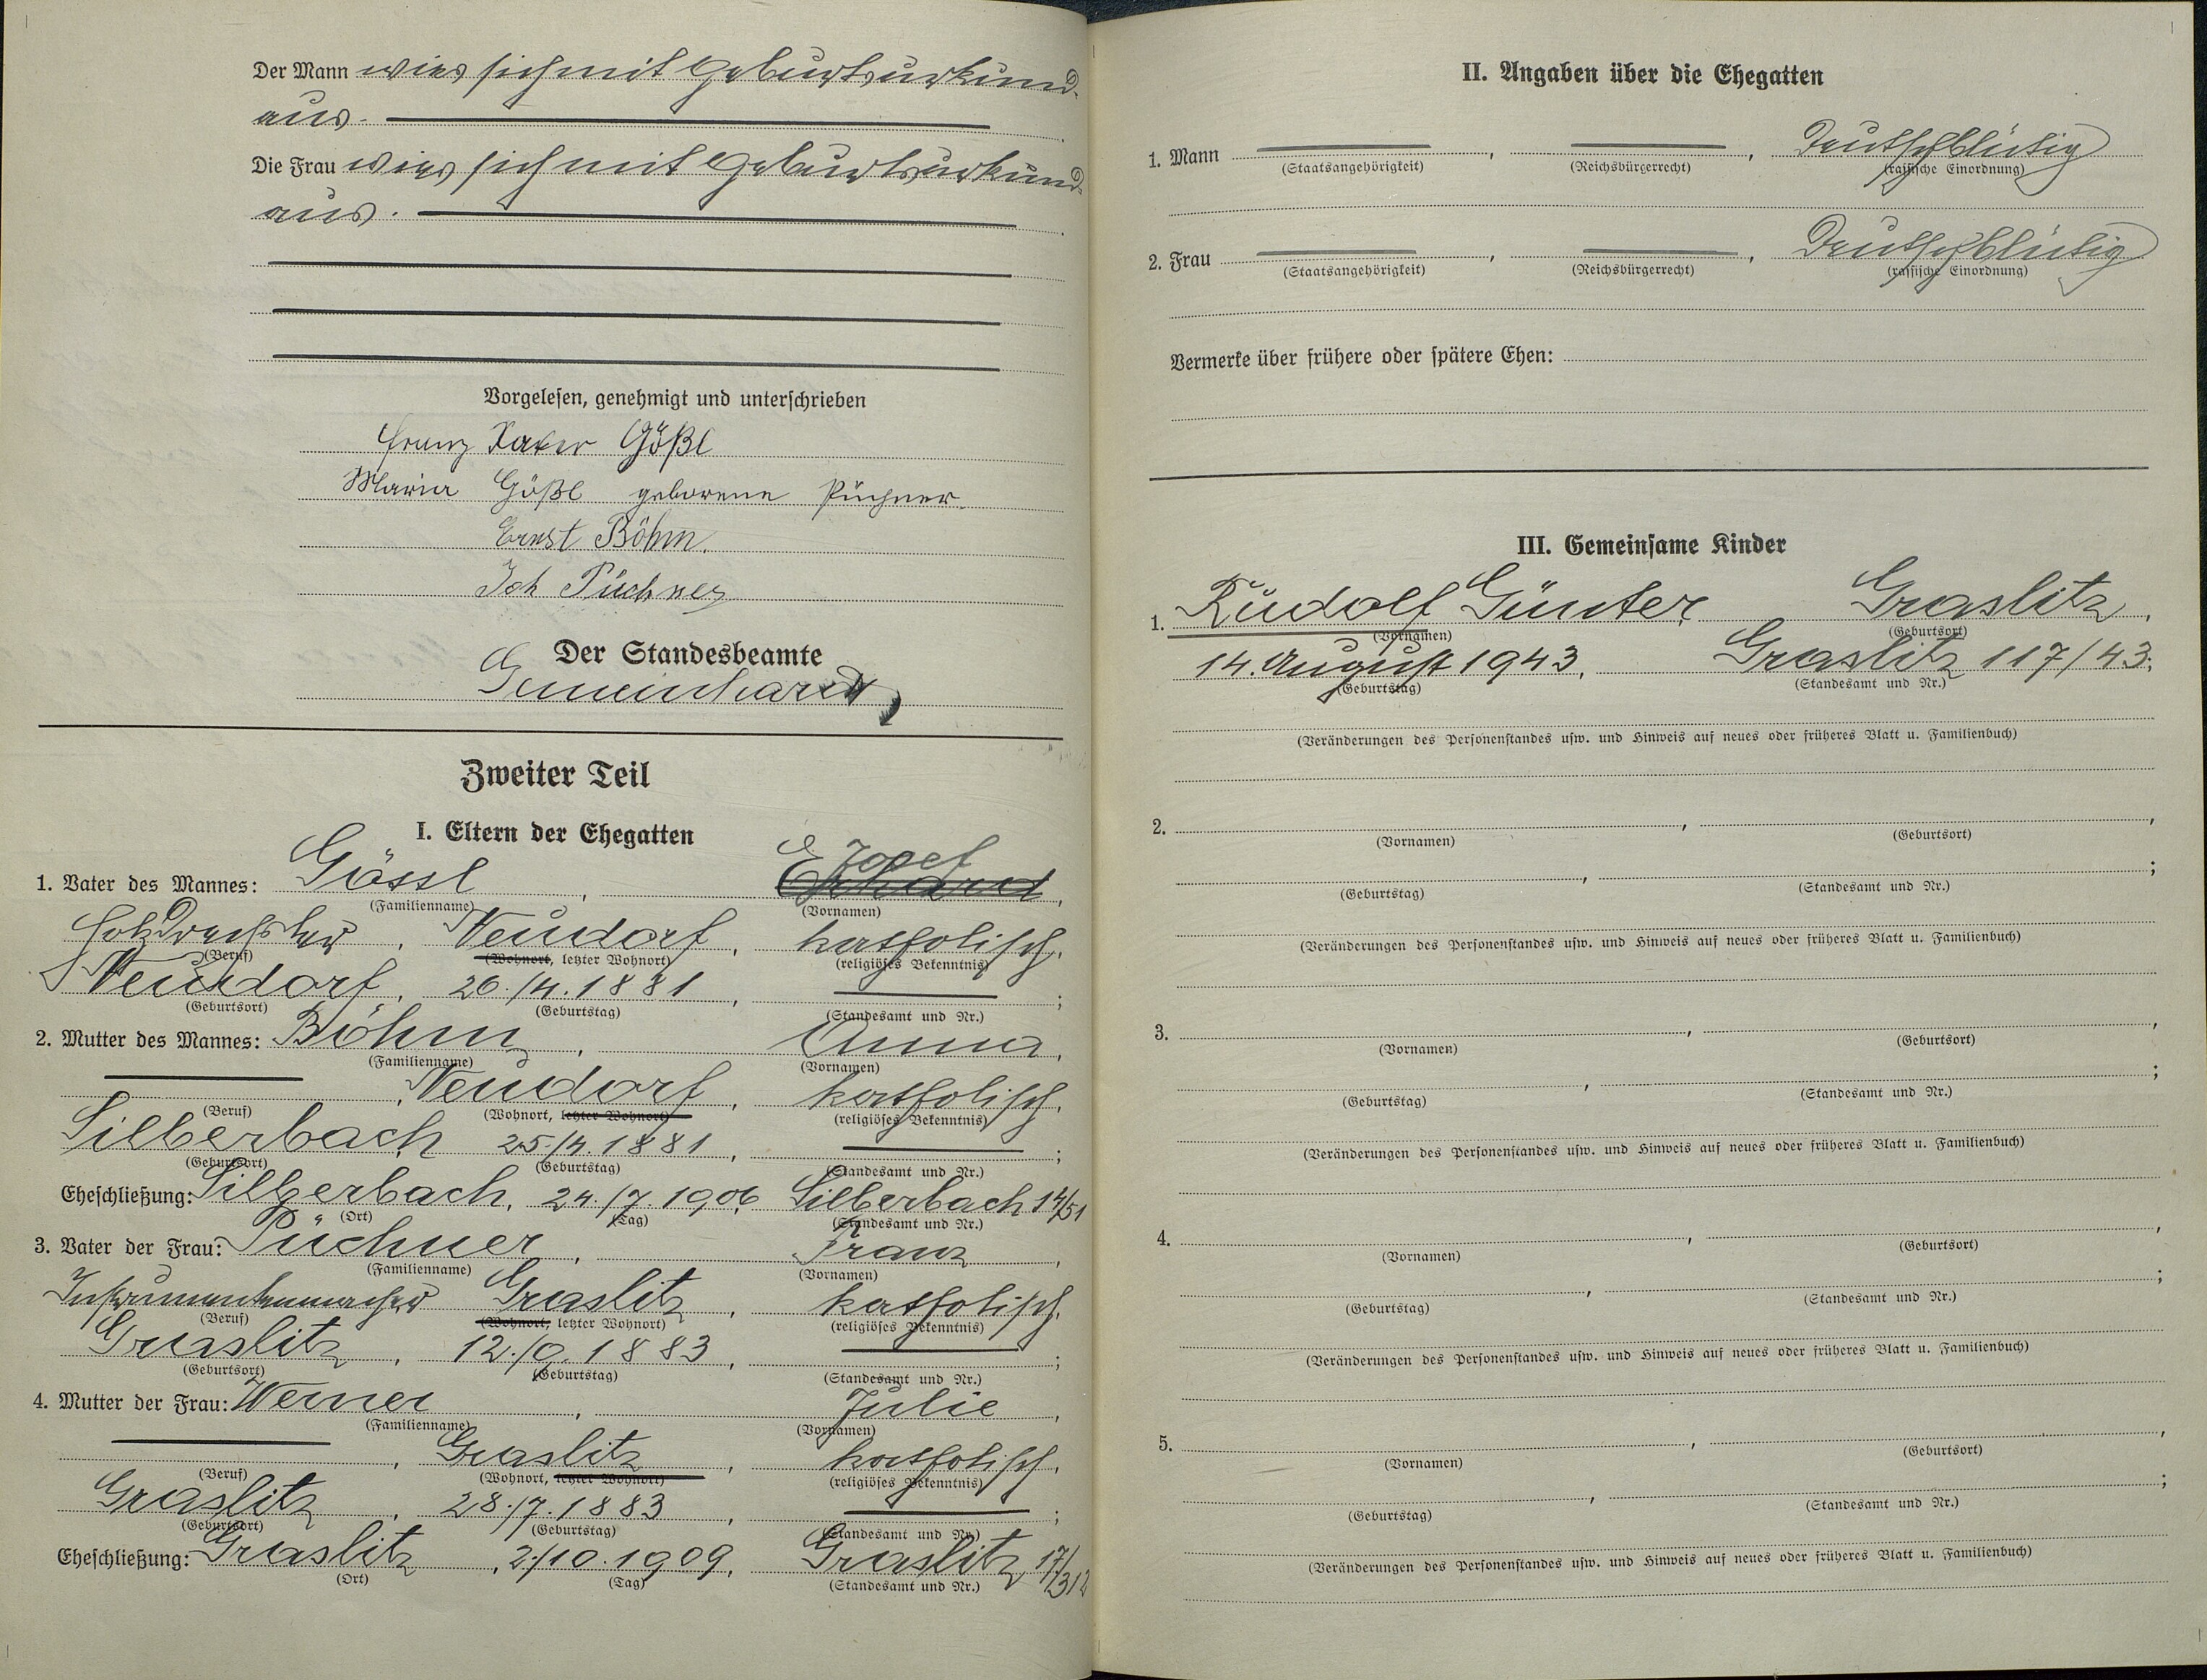 Der Mann wies sich mit Geburtsurkund.
aus.
Die Frau wies sich mit Geburtsurkund.
aus.
Vorgelesen, genehmigt und unterschrieben
Franz Xaver Gößl
Maria Gößl geborene Püchner.
Ernst Böhm.
Joh Püchner
Der Standesbeamte
Gemeinhardt
Zweiter Teil
I. Eltern der Ehegatten
1. Vater des Mannes: Gössl, Josef Erhard,
(Familienname) (Vornamen)
Holzdrechsler, Neudorf, katholisch,
(Beruf) (Wohnort, letzter Wohnort) (religiöses Bekenntnis)
Neudorf, 26./4.1881,
(Geburtsort) (Geburtstag) (Standesamt und Nr.)
2. Mutter des Mannes: Böhm, Anna,
(Familienname) (Vornamen)
Neudorf, katholisch,
(Beruf) (Wohnort, letzter Wohnort) (religiöses Bekenntnis)
Silberbach 25./4.1881,
(Geburtsort) (Geburtstag) (Standesamt und Nr.)
Eheschließung: Silberbach, 24./7.1906, Silberbach 14/51
(Ort) (Tag) (Standesamt und Nr.)
3. Vater der Frau: Püchner, Franz,
(Familienname) (Vornamen)
Instrumentenmacher Graslitz, katholisch,
(Beruf) (Wohnort, letzter Wohnort) (religiöses Bekenntnis)
Graslitz, 12./9.1883,
(Geburtsort) (Geburtstag) (Standesamt und Nr.)
4. Mutter der Frau: Werner, Julie,
(Familienname) (Vornamen)
Graslitz, katholisch,
(Beruf) (Wohnort, letzter Wohnort) (religiöses Bekenntnis)
Graslitz, 28./7.1883,
(Geburtsort) (Geburtstag) (Standesamt und Nr.)
Eheschließung: Graslitz, 2./10.1909, Graslitz 17/312
(Ort) (Tag) (Standesamt und Nr.)
II. Angaben über die Ehegatten
1. Mann , , Deutschblütig
(Staatsangehörigkeit) (Reichsbürgerrecht) (rassische Einordnung)
2. Frau , , Deutschblütig
(Staatsangehörigkeit) (Reichsbürgerrecht) (rassische Einordnung)
Vermerke über frühere oder spätere Ehen:
III. Gemeinsame Kinder
1. Rudolf Günter Graslitz,
(Vornamen) (Geburtsort)
14. August 1943, Graslitz 117/43;
(Geburtstag) (Standesamt und Nr.)
(Veränderungen des Personenstandes usw. und Hinweis auf neues oder früheres Blatt u. Familienbuch)
2. , ,
(Vornamen) (Geburtsort)
, ;
(Geburtstag) (Standesamt und Nr.)
(Veränderungen des Personenstandes usw. und Hinweis auf neues oder früheres Blatt u. Familienbuch)
3. , ,
(Vornamen) (Geburtsort)
, ;
(Geburtstag) (Standesamt und Nr.)
(Veränderungen des Personenstandes usw. und Hinweis auf neues oder früheres Blatt u. Familienbuch)
4. , ,
(Vornamen) (Geburtsort)
, ;
(Geburtstag) (Standesamt und Nr.)
(Veränderungen des Personenstandes usw. und Hinweis auf neues oder früheres Blatt u. Familienbuch)
5. , ,
(Vornamen) (Geburtsort)
, ;
(Geburtstag) (Standesamt und Nr.)
(Veränderungen des Personenstandes usw. und Hinweis auf neues oder früheres Blatt u. Familienbuch)